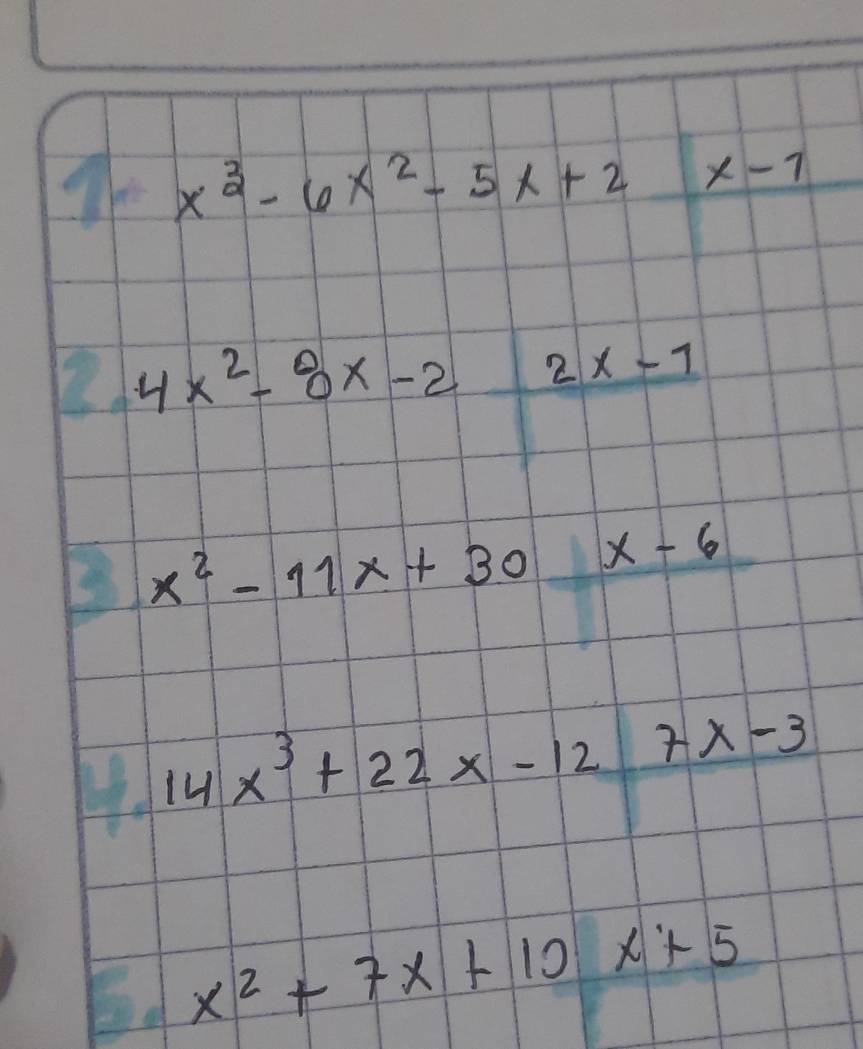 1. x³ - 6x² - 5x + 2 | x - 1
2. 4x² - 8x - 2 | 2x - 1
3. x² - 11x + 30 | x - 6
4. 14x³ + 22x - 12 | 7x - 3
5. x² + 7x + 10 | x + 5